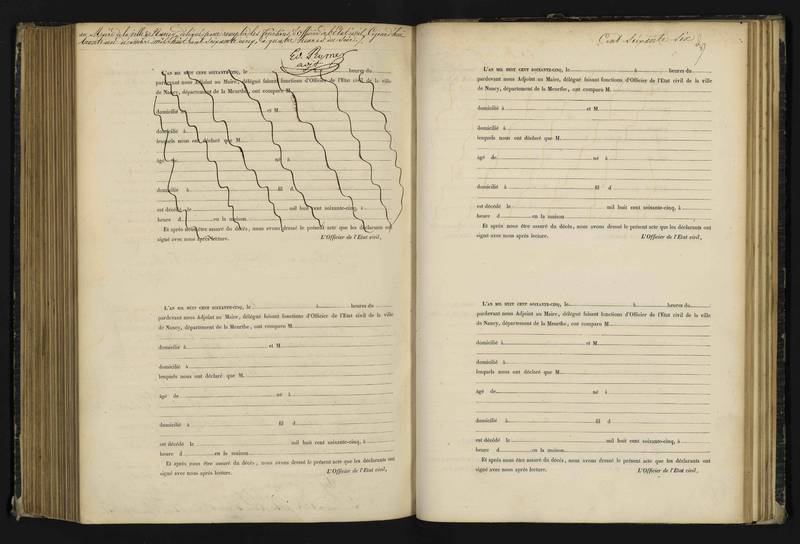 au Maire de la ville de Nancy, délégué pour remplir les fonctions d'Officier de l'Etat civil,
mil huit cent soixante cinq, à quatre heures du soir
L'AN MIL HUIT CENT SOIXANTE-CINQ, le heures du
pardevant nous Adjoint au Maire, délégué faisant fonctions d'Officier de l'Etat civil de la ville
de Nancy, département de la Meurthe, ont comparu M.
domicilié à et M.
domicilié à
lesquels nous ont déclaré que M.
âgé de né à
domicilié à fil d
est décédé le mil huit cent soixante-cinq, à
heure d en la maison
Et après nous être assuré du décès, nous avons dressé le présent acte que les déclarants ont
signé avec nous après lecture. L'Officier de l'Etat civil,
L'AN MIL HUIT CENT SOIXANTE-CINQ, le à heures du
pardevant nous Adjoint au Maire, délégué faisant fonctions d'Officier de l'Etat civil de la ville
de Nancy, département de la Meurthe, ont comparu M.
domicilié à et M.
domicilié à
lesquels nous ont déclaré que M.
âgé de né à
domicilié à fil d
est décédé le mil huit cent soixante-cinq, à
heure d en la maison
Et après nous être assuré du décès, nous avons dressé le présent acte que les déclarants ont
signé avec nous après lecture. L'Officier de l'Etat civil,
Cent soixante six
L'AN MIL HUIT CENT SOIXANTE-CINQ, le à heures du
pardevant nous Adjoint au Maire, délégué faisant fonctions d'Officier de l'Etat civil de la ville
de Nancy, département de la Meurthe, ont comparu M.
domicilié à et M.
domicilié à
lesquels nous ont déclaré que M.
âgé de né à
domicilié à fil d
est décédé le mil huit cent soixante-cinq, à
heure d en la maison
Et après nous être assuré du décès, nous avons dressé le présent acte que les déclarants ont
signé avec nous après lecture. L'Officier de l'Etat civil,
L'AN MIL HUIT CENT SOIXANTE-CINQ, le à heures du
pardevant nous Adjoint au Maire, délégué faisant fonctions d'Officier de l'Etat civil de la ville
de Nancy, département de la Meurthe, ont comparu M.
domicilié à et M.
domicilié à
lesquels nous ont déclaré que M.
âgé de né à
domicilié à fil d
est décédé le mil huit cent soixante-cinq, à
heure d en la maison
Et après nous être assuré du décès, nous avons dressé le présent acte que les déclarants ont
signé avec nous après lecture. L'Officier de l'Etat civil,